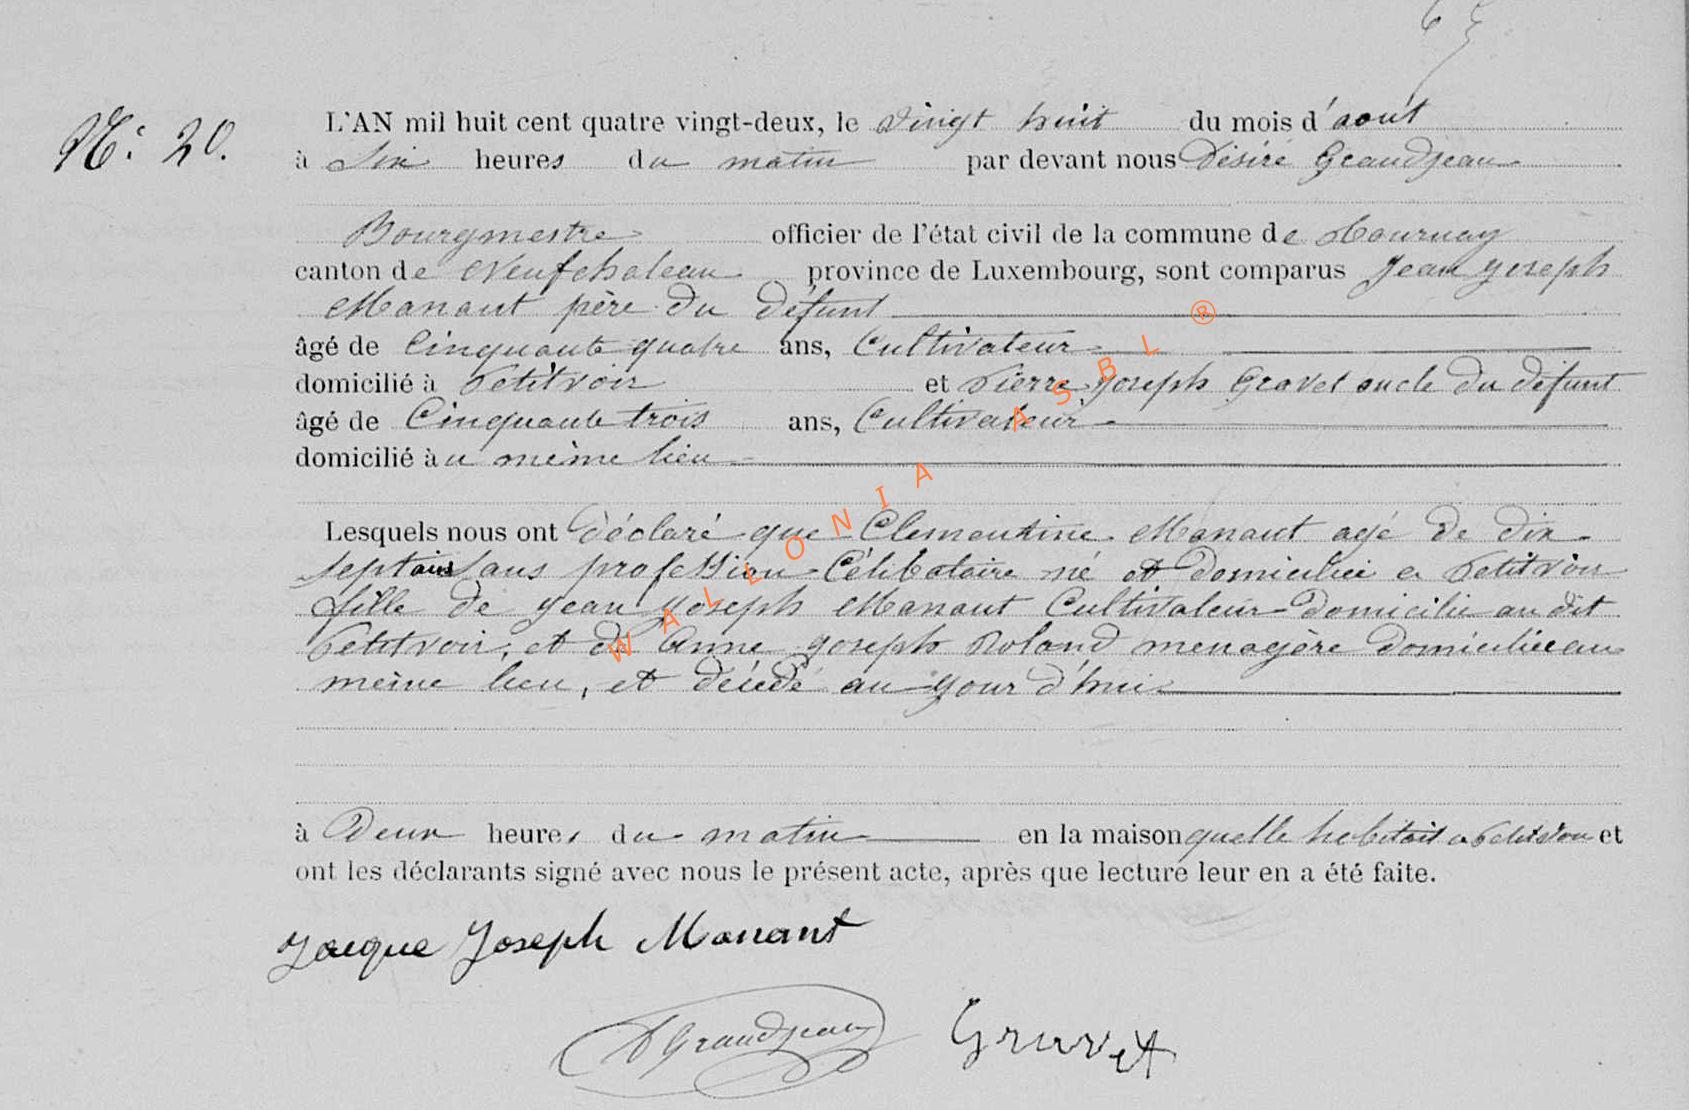 65
N° 20.
L'AN mil huit cent quatre vingt-deux, le vingt huit du mois d'août
à Six heures du matin par devant nous Désiré Grandjean
Bourgmestre officier de l'état civil de la commune de Tournay
canton de Neufchateau province de Luxembourg, sont comparus Jean Joseph
Manant père du défunt
âgé de Cinquante quatre ans, Cultivateur
domicilié à Petitvoir et Pierre Joseph Gravet oncle du défunt
âgé de Cinquante trois ans, Cultivateur
domicilié au même lieu
Lesquels nous ont déclaré que Clementine Manant agé de dix
sept ans sans profession Célibataire né et domiciliée a Petitvoir
fille de Jean Joseph Manant Cultivateur domicilié au dit
Petitvoir, et de Anne Joseph Roland menagère domiciliée au
même lieu, et décédé au jour d'hui
à Deux heures du matin en la maison quelle habitait a Petitvoir et
ont les déclarants signé avec nous le présent acte, après que lecture leur en a été faite.
Jacque Joseph Manant
D Grandjean Gravet
WALLONIA ASBL ®